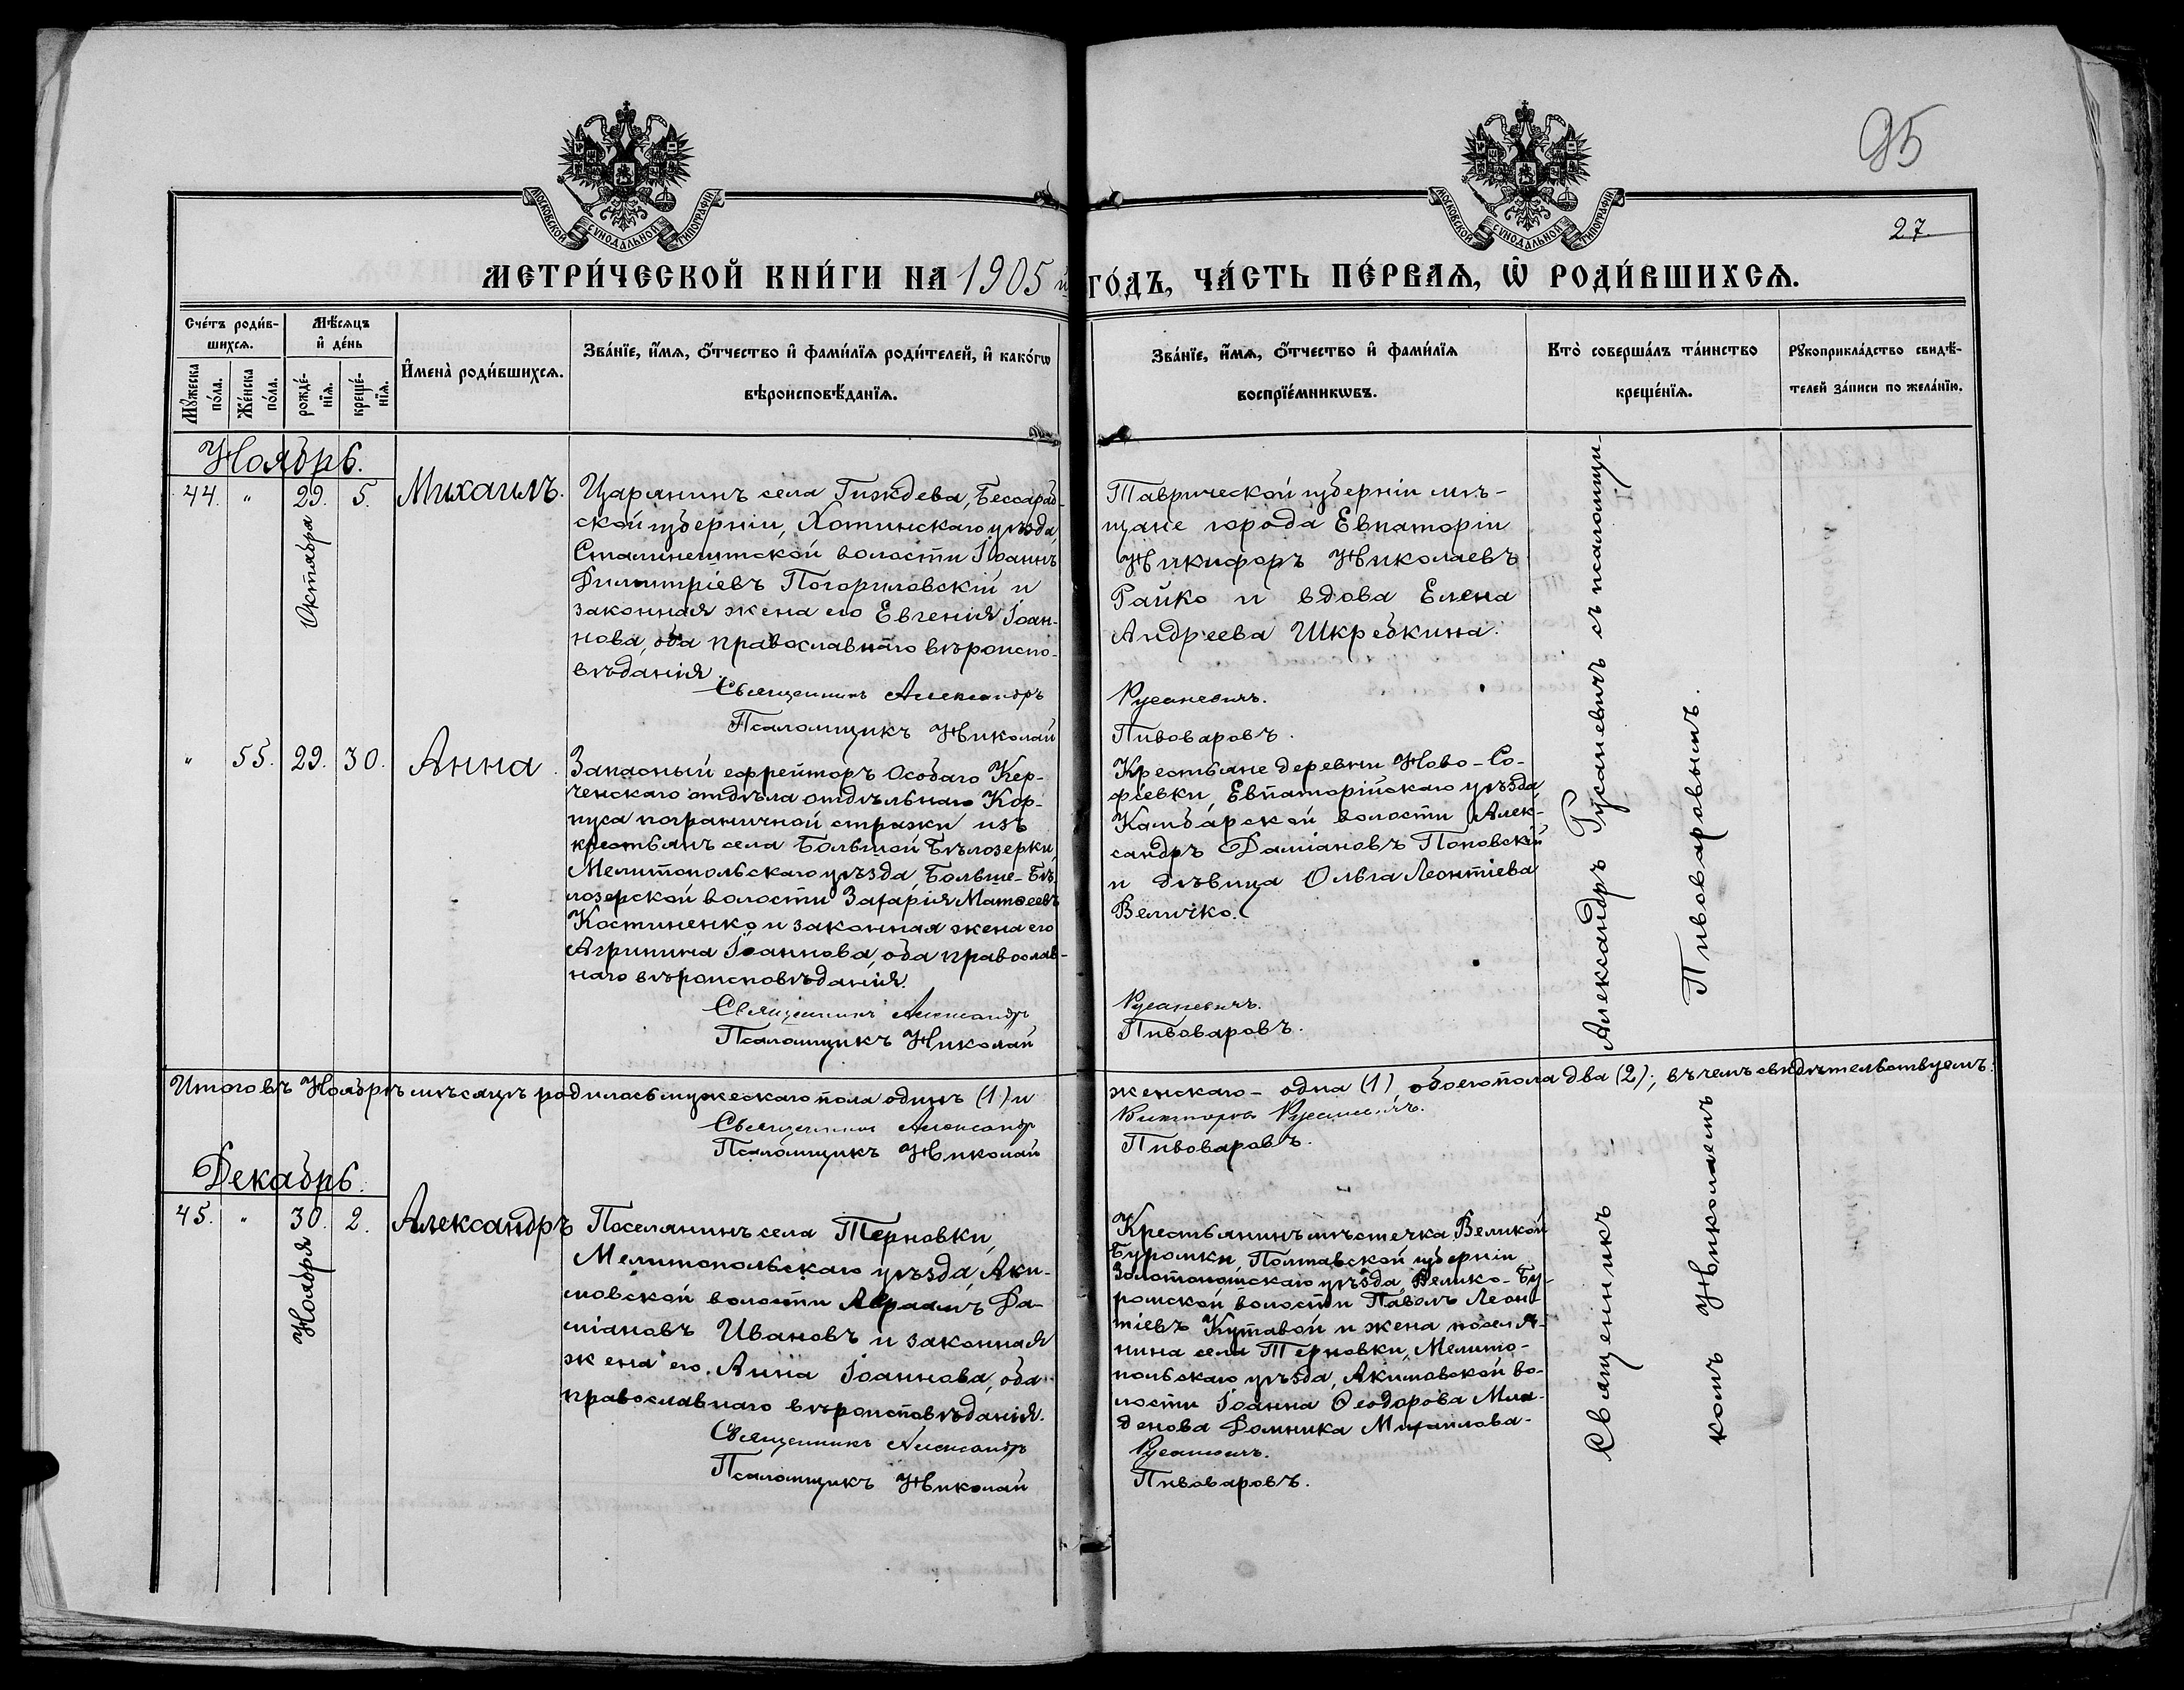 95
27.
МОСКОВСКОЙ СѴНОДАЛЬНОЙ ТИПОГРАФІИ
МОСКОВСКОЙ СѴНОДАЛЬНОЙ ТИПОГРАФІИ
МЕТРИ́ЧЕСКОЙ КНИ́ГИ НА 1905 й ГО́ДЪ, ЧА́СТЬ ПЕ́РВАѦ, Ѽ РОДИ́ВШИХСѦ.
Сче́тъ роди́в-
шихсѧ.
Мꙋ́жеска по́ла.
Же́нска по́ла.
Мѣ́сѧцъ
и҆ де́нь
рожде́-
нїѧ.
креще́-
нїѧ.
И҆мена̀ роди́вшихсѧ.
Зва́нїе, и҆́мѧ, ѻ҆́тчество и҆ фами́лїѧ роди́телей, и҆ како́гѡ
вѣроисповѣ́данїѧ.
Зва́нїе, и҆́мѧ, ѻ҆́тчество и҆ фами́лїѧ
воспрїе́мникѡвъ.
Кто̀ соверша́лъ та́инство
креще́нїѧ.
Рꙋкоприкла́дство свидѣ́-
телей за́писи по жела́нїю.
Ноябрь.
44. " 29. 5. Михаилъ.
Октября
Царянинъ села Гиждева, Бессараб-
ской губерніи, Хотинскаго уѣзда,
Сталинештской волости Іоаннъ
Димитріевъ Погориловскій и
законная жена его Евгенія Іоан-
нова, оба православнаго вѣроиспо-
вѣданія.
Священникъ Александръ
Псаломщикъ Николай
Таврической губерніи мѣ-
щане города Евпаторіи
Никифоръ Николаевъ
Райко и вдова Елена
Андреева Шкребкина.
Русаневичъ.
Пивоваровъ.
" 55. 29. 30. Анна.
Запасный ефрейторъ Особаго Кер-
ченскаго отдѣла отдѣльнаго Кор-
пуса пограничной стражи изъ
крестьянъ села Большой Бѣлозерки,
Мелитопольскаго уѣзда, Больше-Бѣ-
лозерской волости Захарія Матѳеевъ
Костиненко и законная жена его
Агрипина Іоаннова, оба православ-
наго вѣроисповѣданія.
Священникъ Александръ
Псаломщикъ Николай
Крестьяне деревни Ново-Со-
фіевки, Евпаторійскаго уѣзда,
Камбарской волости Алек-
сандръ Даміановъ Поповскій
и дѣвица Ольга Леонтіева
Величко.
Русаневичъ.
Пивоваровъ.
Итого въ Ноябрѣ мѣсяцѣ родилось мужескаго пола одинъ (1) и женскаго - одна (1), обоего пола два (2); въ чемъ свидѣтельствуемъ:
Священникъ Александръ
Псаломщикъ Николай
Русаневичъ.
Пивоваровъ.
Декабрь.
45. " 30. 2. Александръ
Ноября
Поселянинъ села Терновки,
Мелитопольскаго уѣзда, Аки-
мовской волости Авраамъ Да-
міановъ Ивановъ и законная
жена его Анна Іоаннова, оба
православнаго вѣроисповѣданія.
Священникъ Александръ
Псаломщикъ Николай
Крестьянинъ мѣстечка Великой
Буромки, Полтавской губерніи
Золотоношскаго уѣзда, Велико-Бу-
ромской волости Павелъ Леон-
тіевъ Кутавой и жена поселя-
нина села Терновки, Мелито-
польскаго уѣзда, Акимовской во-
лости Іоанна Ѳеодорова Мла-
денова Домника Михаилова.
Русаневичъ.
Пивоваровъ.
Священникъ Александръ Русаневичъ съ псаломщи-
комъ Николаемъ Пивоваровымъ.